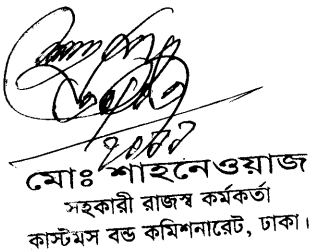 মোঃ শাহনেওয়াজ
সহকারী রাজস্ব কর্মকর্তা
কাস্টমস বন্ড কমিশনারেট, ঢাকা।